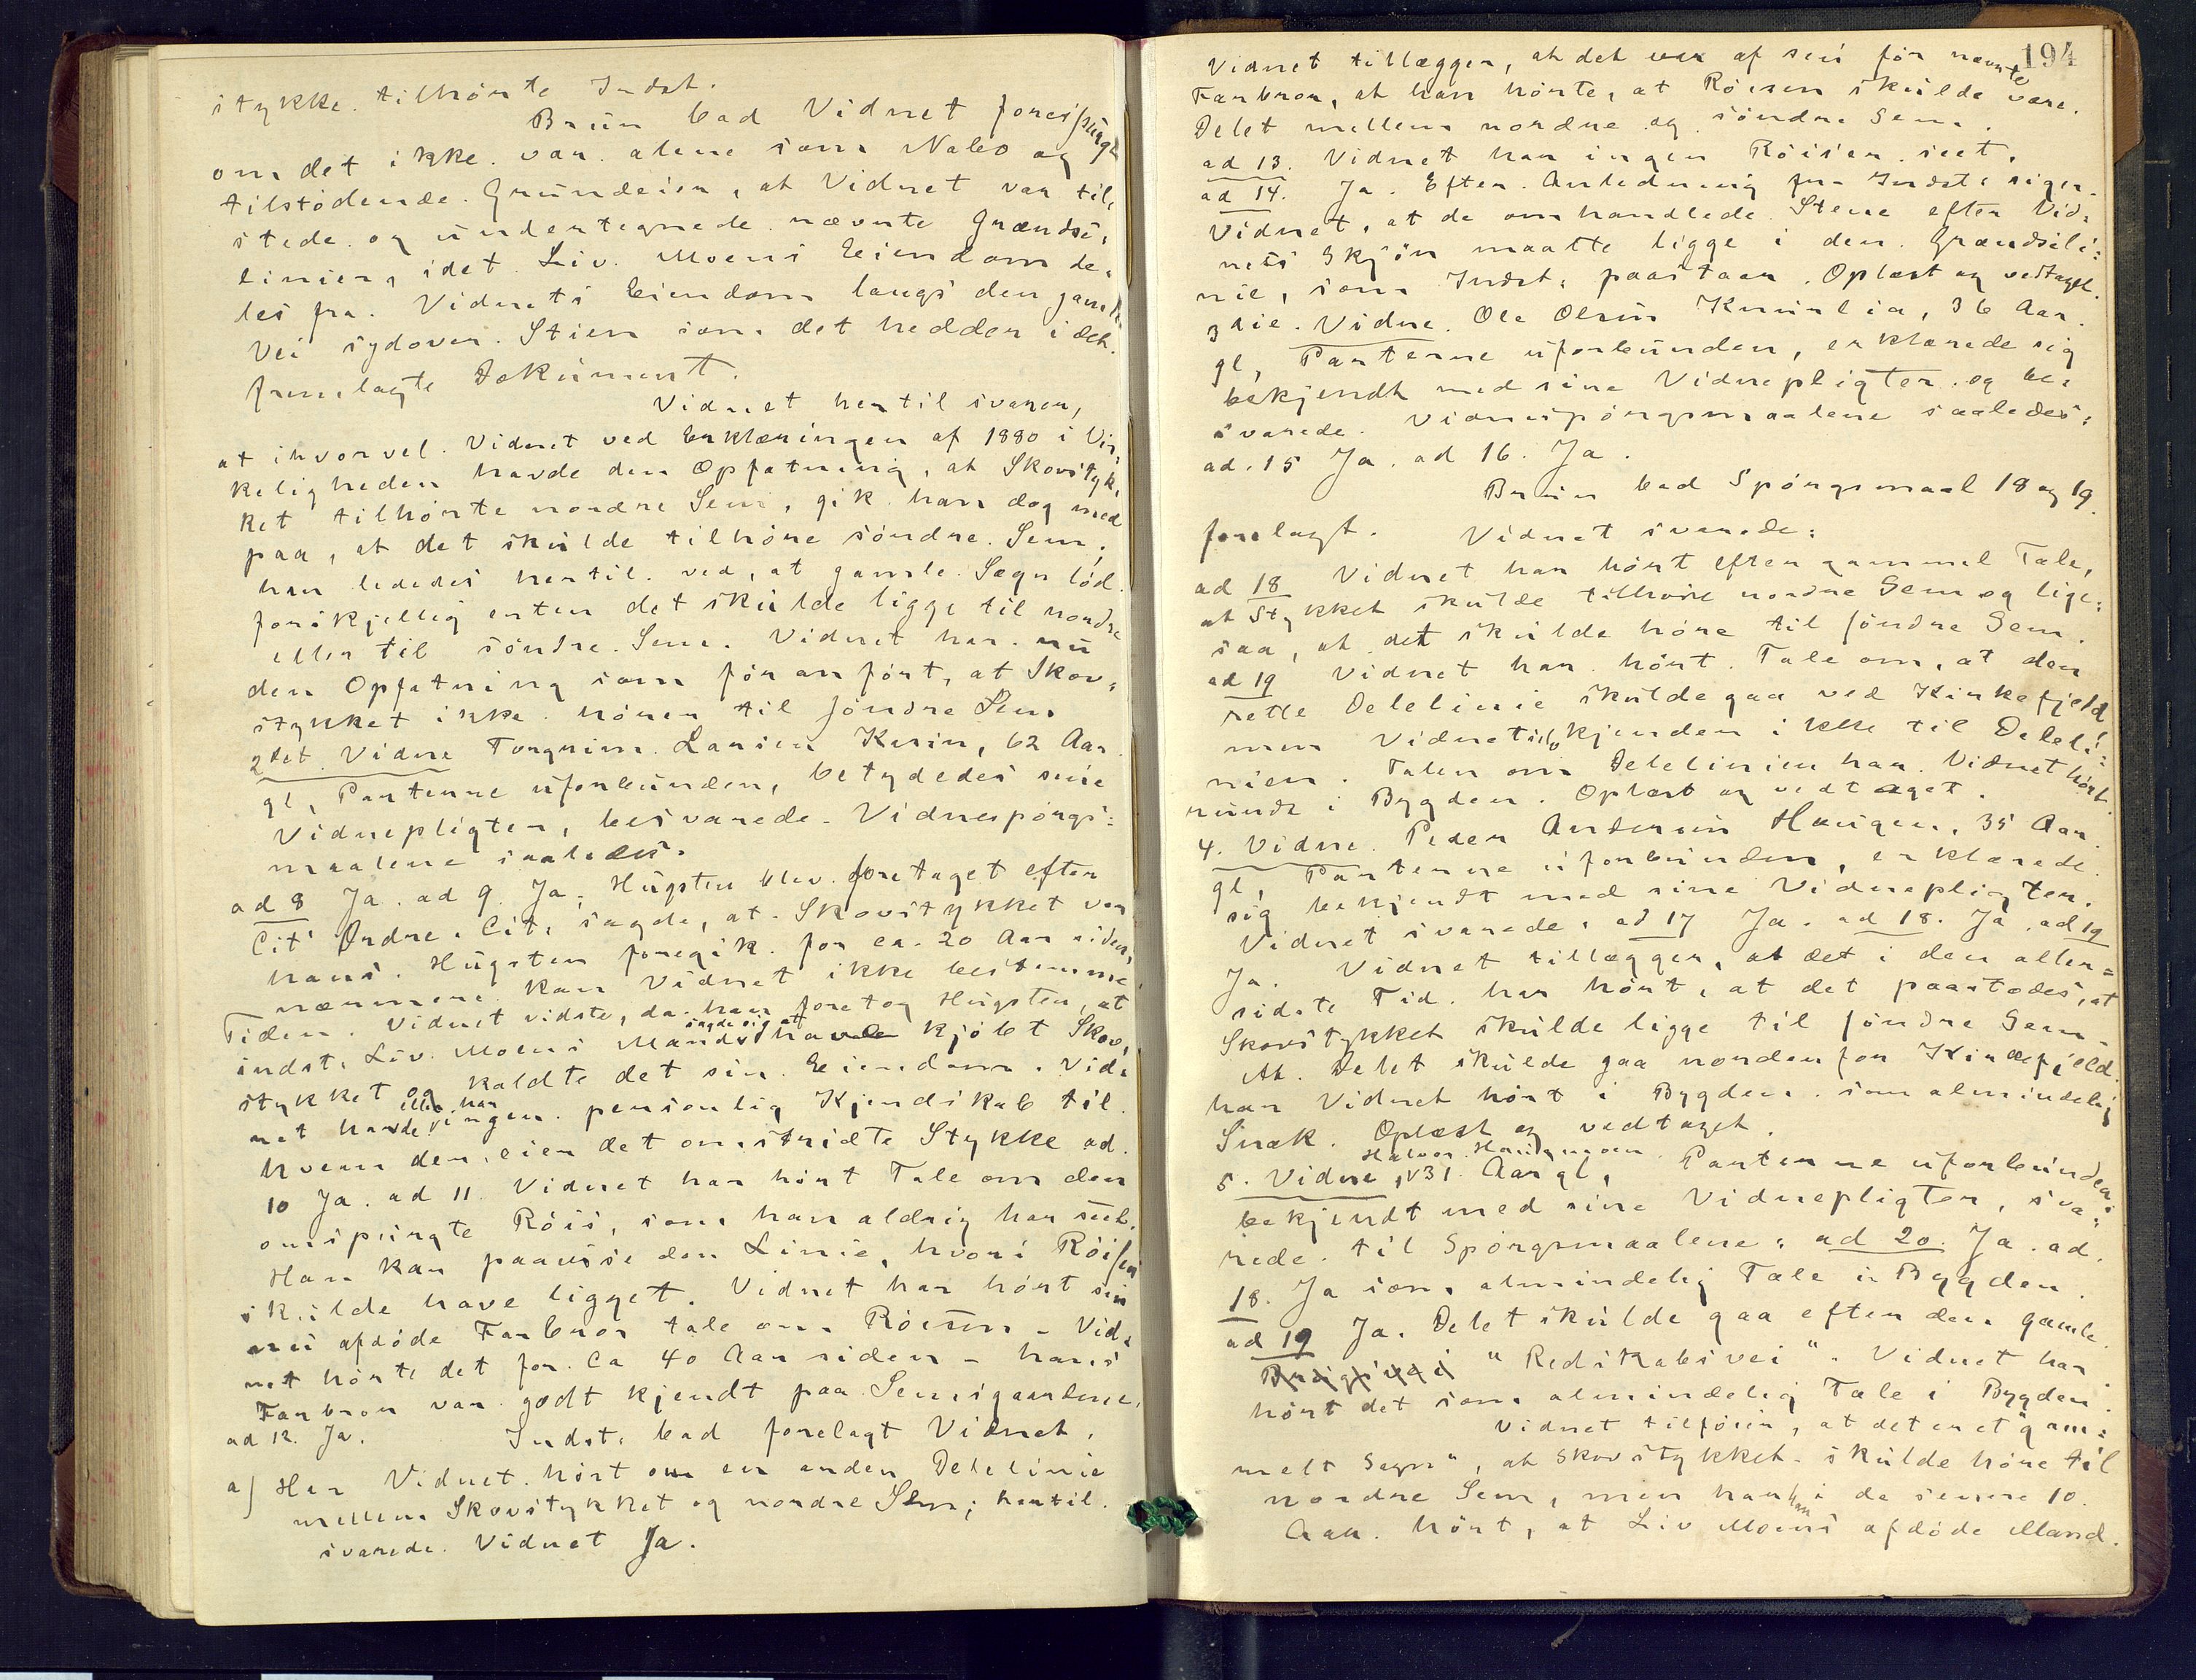 stykke tilhörte Indst.
Brun bad Vidnet forespurgt
om det ikke var alene som Nabo og
tilstödende Grundeier, at Vidnet var til,
stede og undertegnede nævnte Grændse,
linier, idet Liv Moens Eiendom de,
les fra Vidnets Eiendom langs den gamle
Vei sydover Stien som det hedder i det
fremlagte Dokument.
Vidnet hertil svarer,
at ihvorvel Vidnet ved Erklæringen af 1880 i Vir,
keligheden havde den Opfatning, at Skovstyk,
ket tilhörte nordre Sem, gik han dog med
paa, at det skulde tilhöre söndre Sem;
han lededes hertil ved, at gamle Sagn löd
forskjellig enten det skulde ligge til nordre
eller til söndre Sem. Vidnet har nu
den Opfatning som för anfört, at Skov,
stykket ikke hörer til söndre Sem
2det Vidne Torgrim Larsen Krin, 62 Aar
gl, Parterne uforbunden, betydedes sine
Vidnepligter, besvarede Vidnespörgs=
maalene saaledes.
ad 8 Ja. ad 9 Ja, Hugsten blev foretaget efter
Cit' Ordre. Cit, sagde, at Skovstykket var
hans. Hugsten foregik for ca. 20 Aar siden,
nærmere kan Vidnet ikke bestemme
Tiden. Vidnet vidste, da han foretog Hugsten, at
indst, Liv Moens Mand sagde sig at have kjöbt Skov,
stykket og kaldte det sin Eiendom. Vid,
net havde eller har ingen personlig Kjendskab til
hvem der eier det omstridte Stykke ad
10 Ja. ad 11. Vidnet har hört Tale om den
omspurgte Röis, som han aldrig har seet.
Han kan paavise den Linie, hvori Röisen
skulde have ligget. Vidnet har hört sin
nu afdöde Farbror tale om Röisen - Vid,
net hörte det for Ca 40 Aar siden - hans
Farbror var godt kjendt paa Semsgaardene,
ad 12. Ja. Indst. bad forelagt Vidnet,
a) Har Vidnet hört om en anden Delelinie
mellem Skovstykket og nordre Sem; hertil
svarede Vidnet Ja.
194
Vidnet tillægger, at det var af sin för nævnte
Farbror, at han hörte, at Röisen skulde være
Delet mellem nordre og söndre Sem.
ad 13. Vidnet har ingen Röiser seet.
ad 14. Ja. Efter Anledning fra Indst. siger
Vidnet, at de omhandlede Stene efter Vid,
nets Skjön maatte ligge i den Grændseli=
nie, som Indst. paastaar. Oplæst og vedtaget.
3die Vidne Ole Olsen Knurlia, 36 Aar
gl, Parterne uforbunden, erklærede sig
bekjendt med sine Vidnepligter og be,
svarede Vidnespörgsmaalene saaledes:
ad. 15 Ja. ad 16. Ja.
Brun bad Spörgsmaal 18 og 19
forelagt. Vidnet svarede:
ad 18 Vidnet har hört efter gammel Tale,
at Stykket skulde tilhöre nordre Sem og lige=
saa, at det skulde höre til söndre Sem.
ad 19 Vidnet har hört Tale om, at den
rette Delelinie skulde gaa ved Kirkefjeld
men Vidnet selv kjender ikke til Deleli=
nien. Talen om Delelinien har Vidnet hört
rundt i Bygden. Oplæst og vedtaget.
4. Vidne. Peder Andersen Haugen, 35 Aar
gl, Parterne uforbunden, erklærede
sig bekjendt med sine Vidnepligter.
Vidnet svarede, ad 17 Ja. ad 18. Ja. ad 19
Ja. Vidnet tillægger, at det i den aller=
sidste Tid har hört, at det paastodes, at
Skovstykket skulde ligge til söndre Sem
At Delet skulde gaa nordenfor Kirkefjeld
har Vidnet hört i Bygden som almindelig
Snak. Oplæst og vedtaget.
5. Vidne, Halvor 31 Aar gl, Parterne uforbunden,
bekjendt med sine Vidnepligter, sva=
rede til Spörgsmaalene: ad 20. Ja. ad
18. Ja som almindelig Tale i Bygden.
ad 19 Ja. Delet skulde gaa efter den gamle
"Redskabsvei". Vidnet har
hört det som almindelig Tale i Bygden.
Vidnet tilföier, at det er et "gam=
melt Sagn", at Skovstykket skulde höre til
nordre Sem, men han har i de senere 10
Aar hört, at Liv Moens afdöde Mand